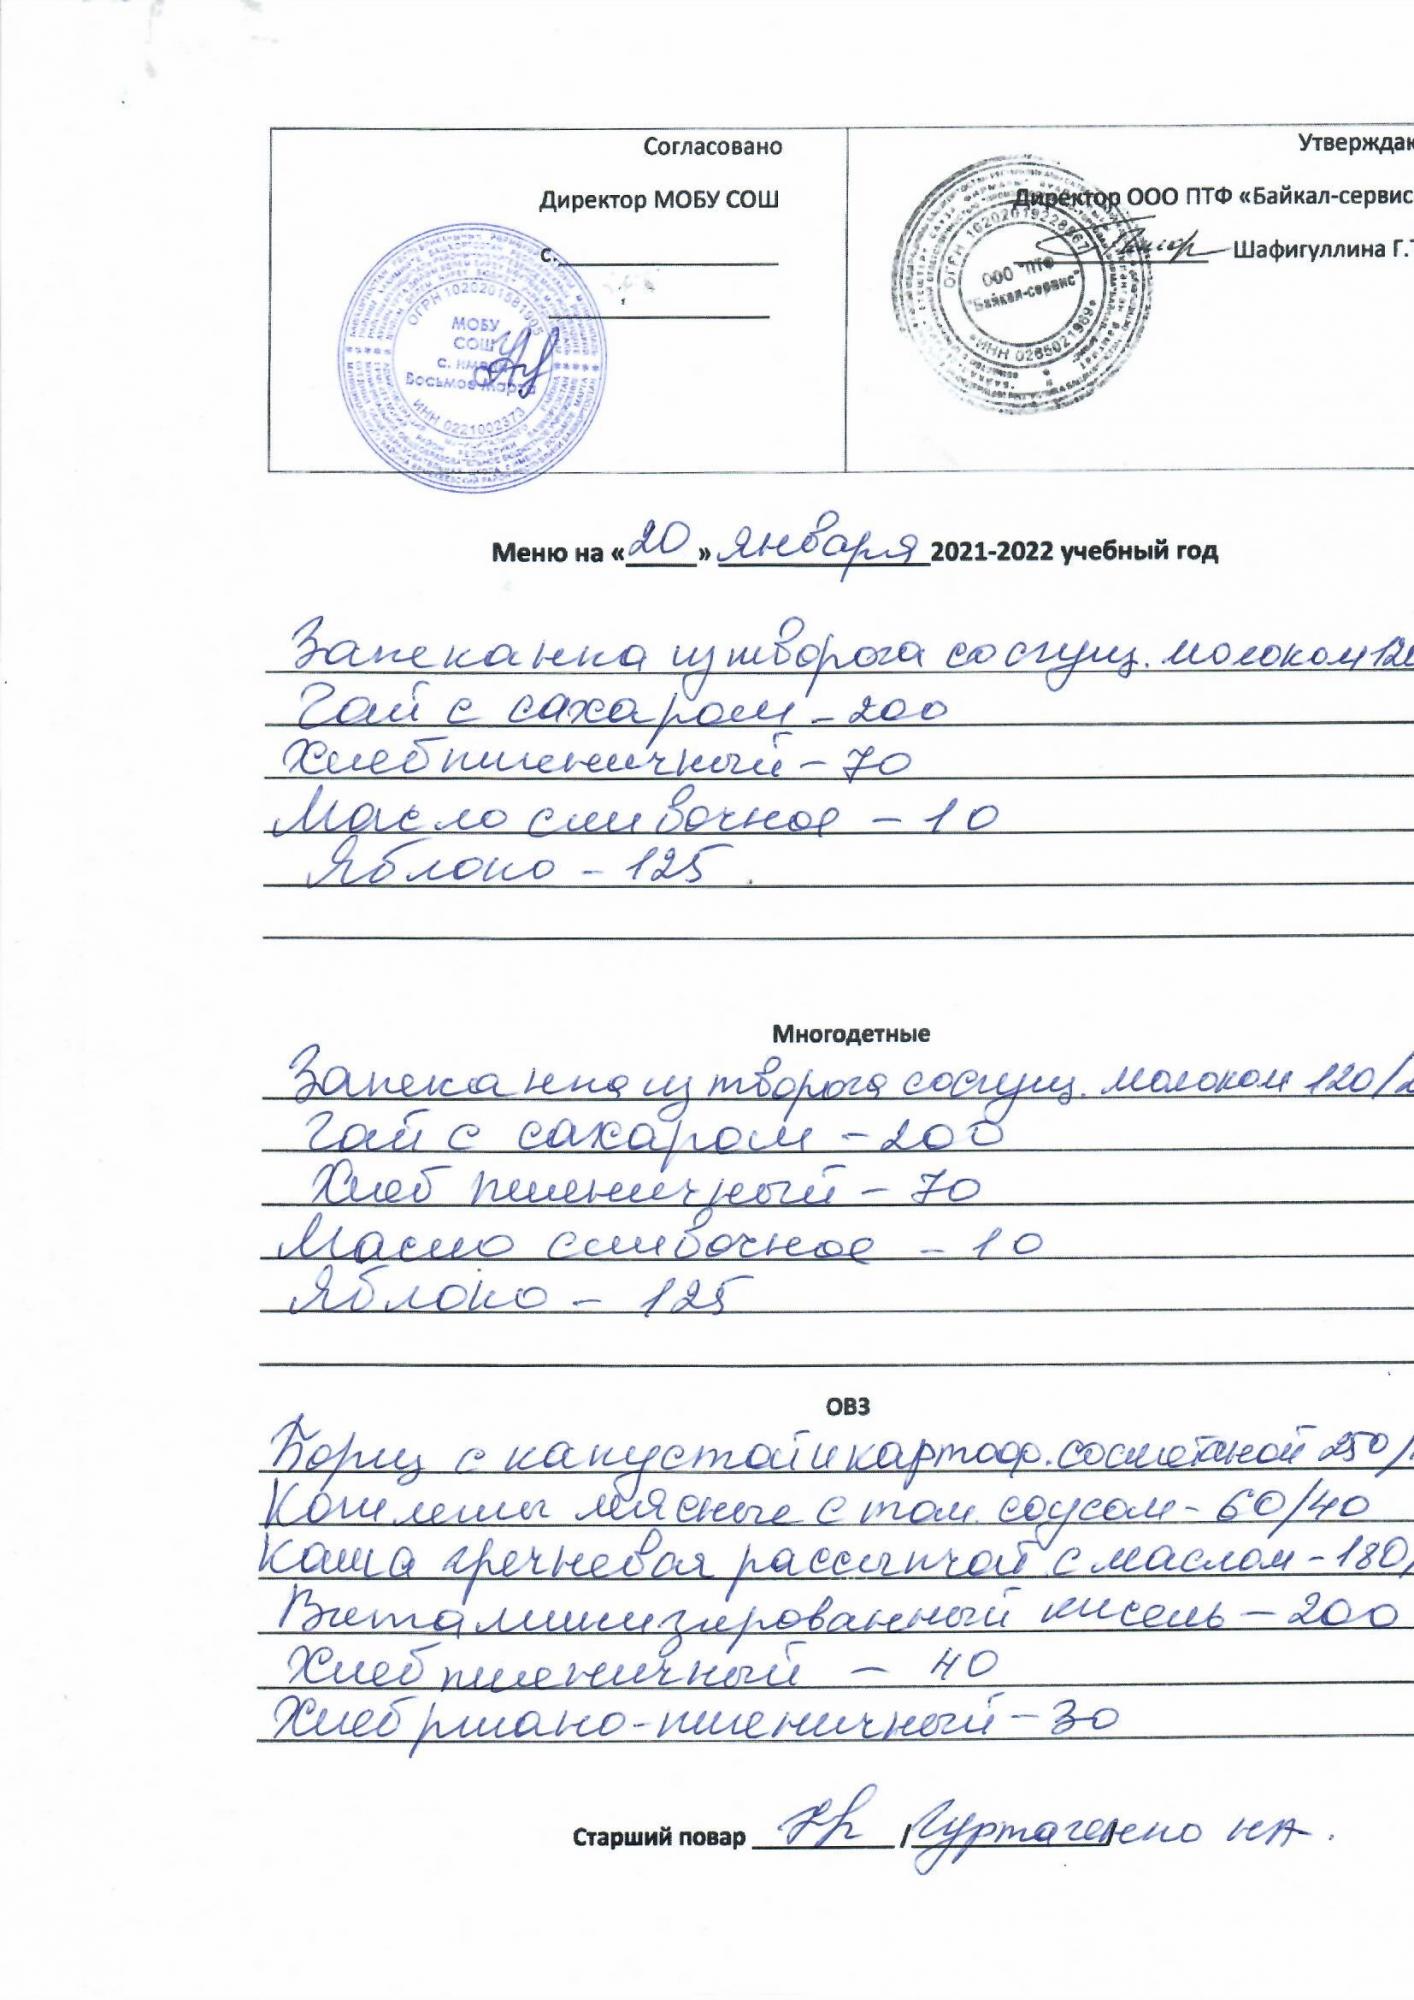 Согласовано
Директор МОБУ СОШ
с.
Утверждаю
Директор ООО ПТФ «Байкал-сервис
Шафигуллина Г.Т
ОГРН 1020201581905
МОБУ
СОШ
с. имени
Восьмое Марта
ИНН 0221002373
ОГРН 1020201922867
ООО "ПТФ
"Байкал-сервис"
ИНН 0265021969
Меню на «20» января 2021-2022 учебный год
Запеканка из творога со сгущ. молоком 120
Чай с сахаром - 200
Хлеб пшеничный - 70
Масло сливочное - 10
Яблоко - 125
Многодетные
Запеканка из творога со сгущ. молоком 120/2
Чай с сахаром - 200
Хлеб пшеничный - 70
Масло сливочное - 10
Яблоко - 125
ОВЗ
Борщ с капустой и картоф. со сметаной 250/
Котлеты мясные с том. соусом - 60/40
Каша гречневая рассыпчат с маслом - 180/
Витаминизированный кисель - 200
Хлеб пшеничный - 40
Хлеб ржано-пшеничный - 30
Старший повар / Н.А.